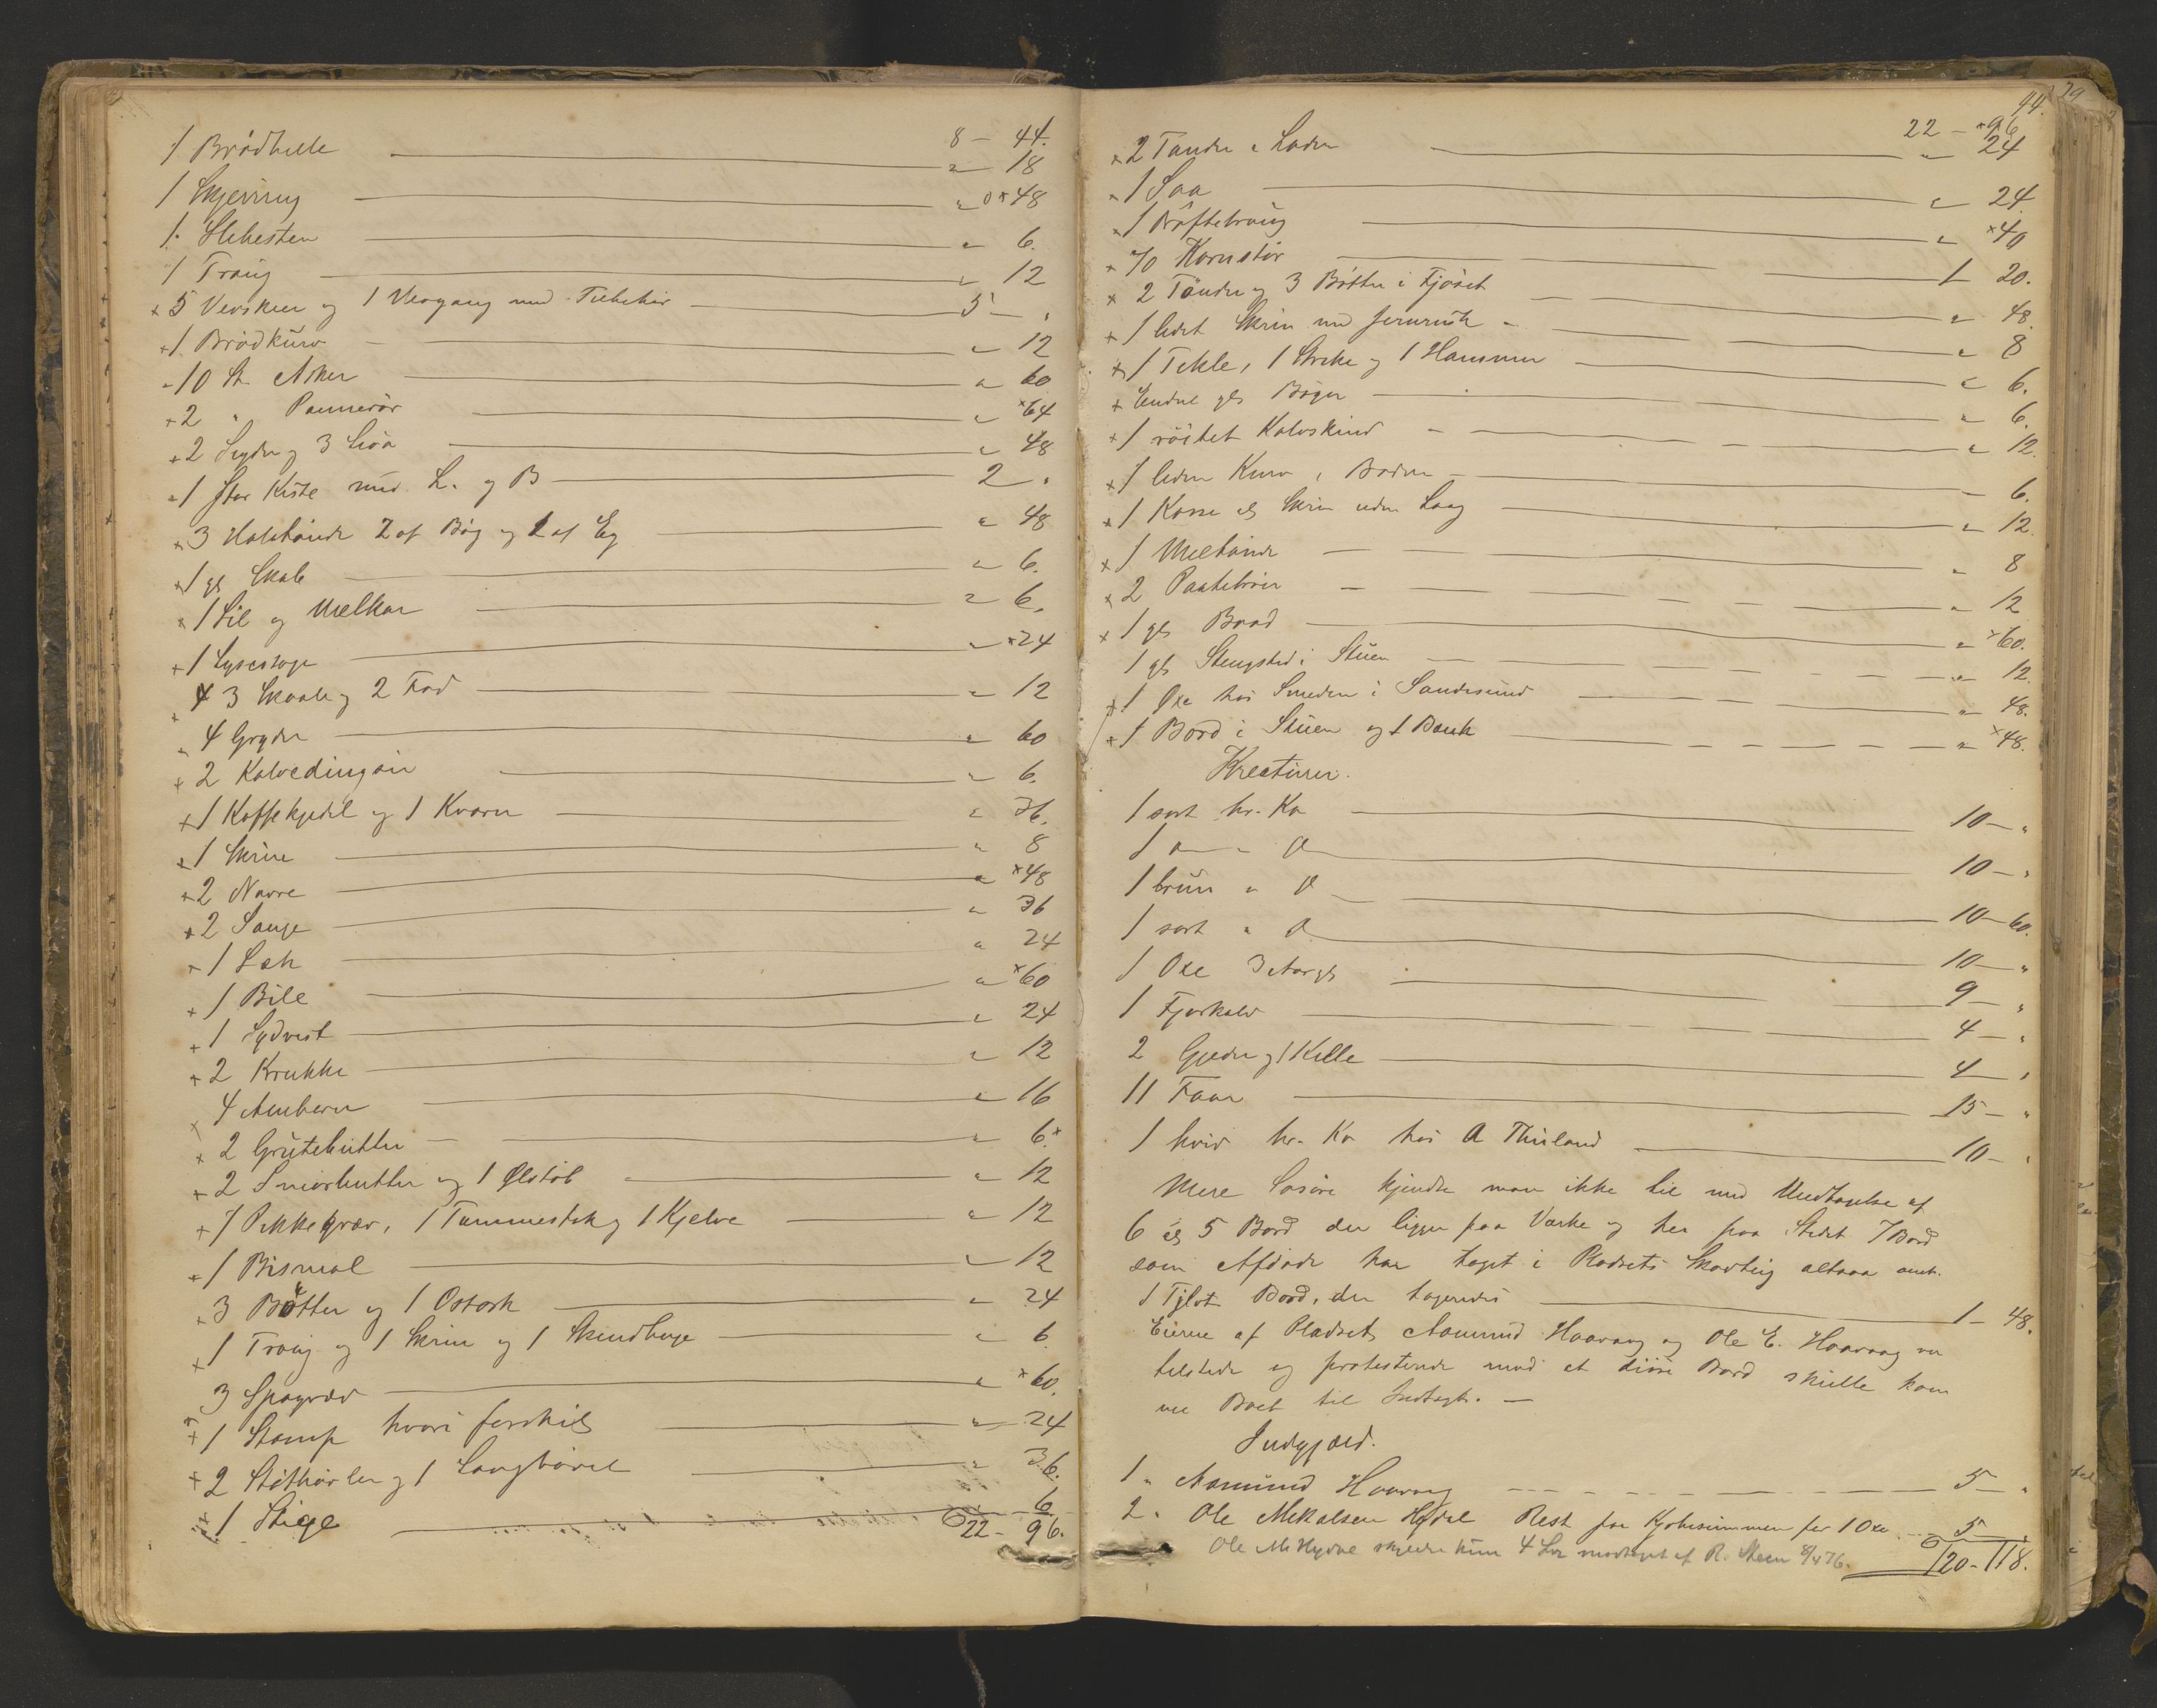 8 - 44.
1 Brödhelle " 18
1 Skjering " 0 * 48
1. Slibesten " 6.
1 Traug " 12
+ 5 Verskeer og 1 Veogang med Tilbehör 5 - "
+ 1. Brödkurv " 12
- 10 St. Asker " 60
+ 2 " Pannerör " × 64
+ 2 Sigder og 3 Liöa " 48
- 1 stor Kiste med L. og B 2 - "
× 3 Halvtönde 2 af Bög og 1 af Eg " 48
× 1 gl Skab " 6.
× 1 Sil og Melkar " 6.
+ 1 Lysesage " × 24
+ 3 Skaale og 2 Fad " 12
" 4 Gryder " 60
+ 2 Kalve " 6.
+ 1 Kaffekjedel og 1 Kværn " 36.
× 1 Skrin " 8
× 2 Navre " × 48
+ 2 Sauge " 36
× 1 Sæk " 24
+ 1 Bile " × 60
+ 1 Sydvest " 24
+ 2 Krukke " 12
× 4 Ambarer " 16
× 2 Grütebutter " 6. ×
+ 2 Smörbutter og 1 Ølstöb " 12
+ 7 Rekkegrær, 1 Tummestok og 1 Kjelve " 12
+ 1 Bismal " 12
× 3 Bötter og 1 Ostask " 24
× 1 Traug og 1 Skrin og 1 Skindhuge " 6
3 Spogrær " × 60.
+ 1 Stamp hvori forskil " 24
+ 2 og 1 " 36.
× 1 Stige " 6
22 - 96.
44.
22 - × 96
× 2 Tønder i Laden " 24
× 1 Saa " 24
× 1 Dröftetraug " × 40
+ 70 Kornstör 1 - 20.
× 2 Tönder og 3 Bötter i Fjöset " 48.
+ 1 lidet Skrin med Jernrusk " 8
× 1 Tekle, 1 Streke og 1 Hammer " 6.
+ Endeel gle Böger " 6.
+ 1 röitet Kalvskind " 12.
× 1 liden Kurv i Boden " 6.
× 1 Kasse el Skrin uden Laag " 12.
× 1 Meltönde " 8
× 2 " 12
× 1 gl Baad " × 60.
1 gl Sengsted i Stuen " 12.
× 1 Øxe hos Smeden i Sandesund " 48.
+ 1 Bord i Stuen og 1 Bænk " × 48.
Kreaturer.
1 sort hr. Ko 10 - "
1 do " do 10 - "
1 brun " do 10 - 60.
1 sort " do 10 - "
1 Oxe 3 Aargl 9 - "
1 Fjorkalv 4 - "
2 Gjeder og 1 Kille 4 - "
11 Faar 15 - "
1 hvid hr. Ko hos A Thuland 10 - "
Mere Lösöre kjendte man ikke til med Undtagelse af
6 á 5 Bord der ligger paa Værke og her paa Stedet 7 Bord
som Afdøde har taget i Pladsets Skovteig altsaa omt.
1 Tylvt Bord, der tageredes 1 - 48.
Eierne af Pladset, Aamund Haavaag og Ole E. Haavaag var
tilstede og protesterede mod at disse Bord skulle kom
me Boet til Indtægt. -
Indgjæld.
1. Aamund Haavaag 5 - "
2. Ole Mikalsen Hydal Rest paa Kjøbesummen for 1 Oxe 5 - "
Ole M. Hydal skylder kun 4 modtaget af R. Steen 8/4 76.
120 - 118.